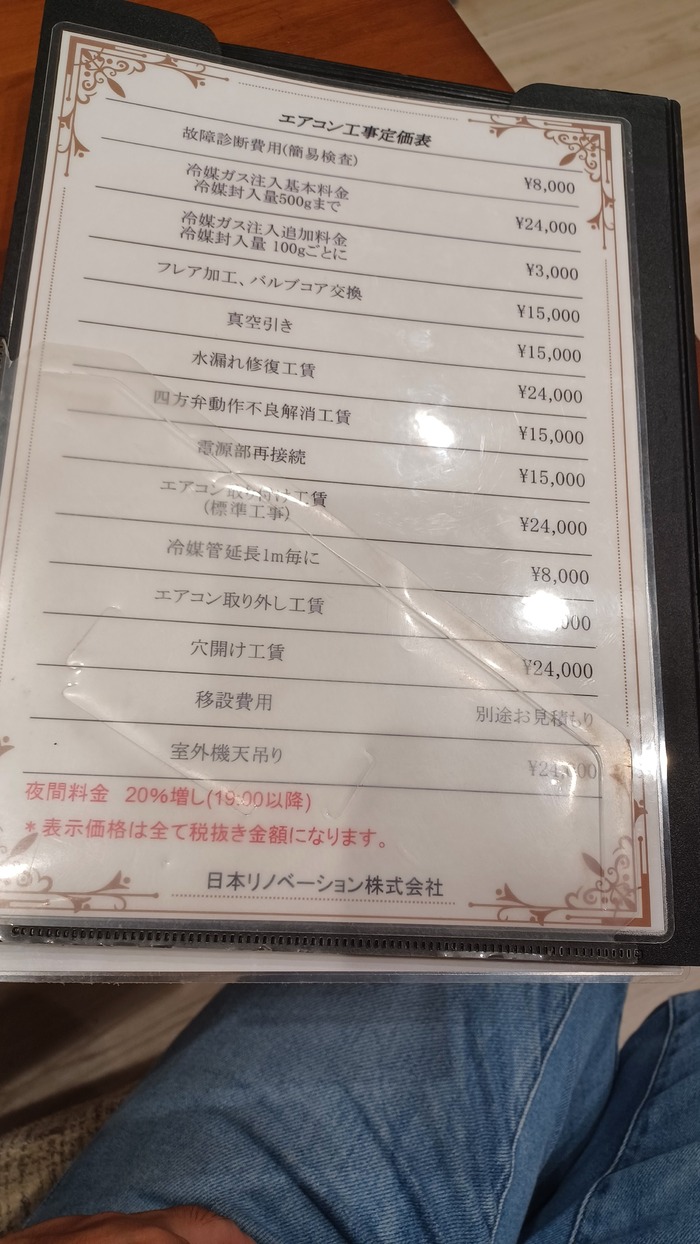 エアコン工事定価表
故障診断費用(簡易検査) ¥8,000
冷媒ガス注入基本料金
冷媒封入量500gまで ¥24,000
冷媒ガス注入追加料金
冷媒封入量 100gごとに ¥3,000
フレア加工、バルブコア交換 ¥15,000
真空引き ¥15,000
水漏れ修復工賃 ¥24,000
四方弁動作不良解消工賃 ¥15,000
電源部再接続 ¥15,000
エアコン取り付け工賃
(標準工事) ¥24,000
冷媒管延長1m毎に ¥8,000
エアコン取り外し工賃
穴開け工賃 ¥24,000
移設費用 別途お見積もり
室外機天吊り ¥24,000
夜間料金 20%増し(19:00以降)
*表示価格は全て税抜き金額になります。
日本リノベーション株式会社